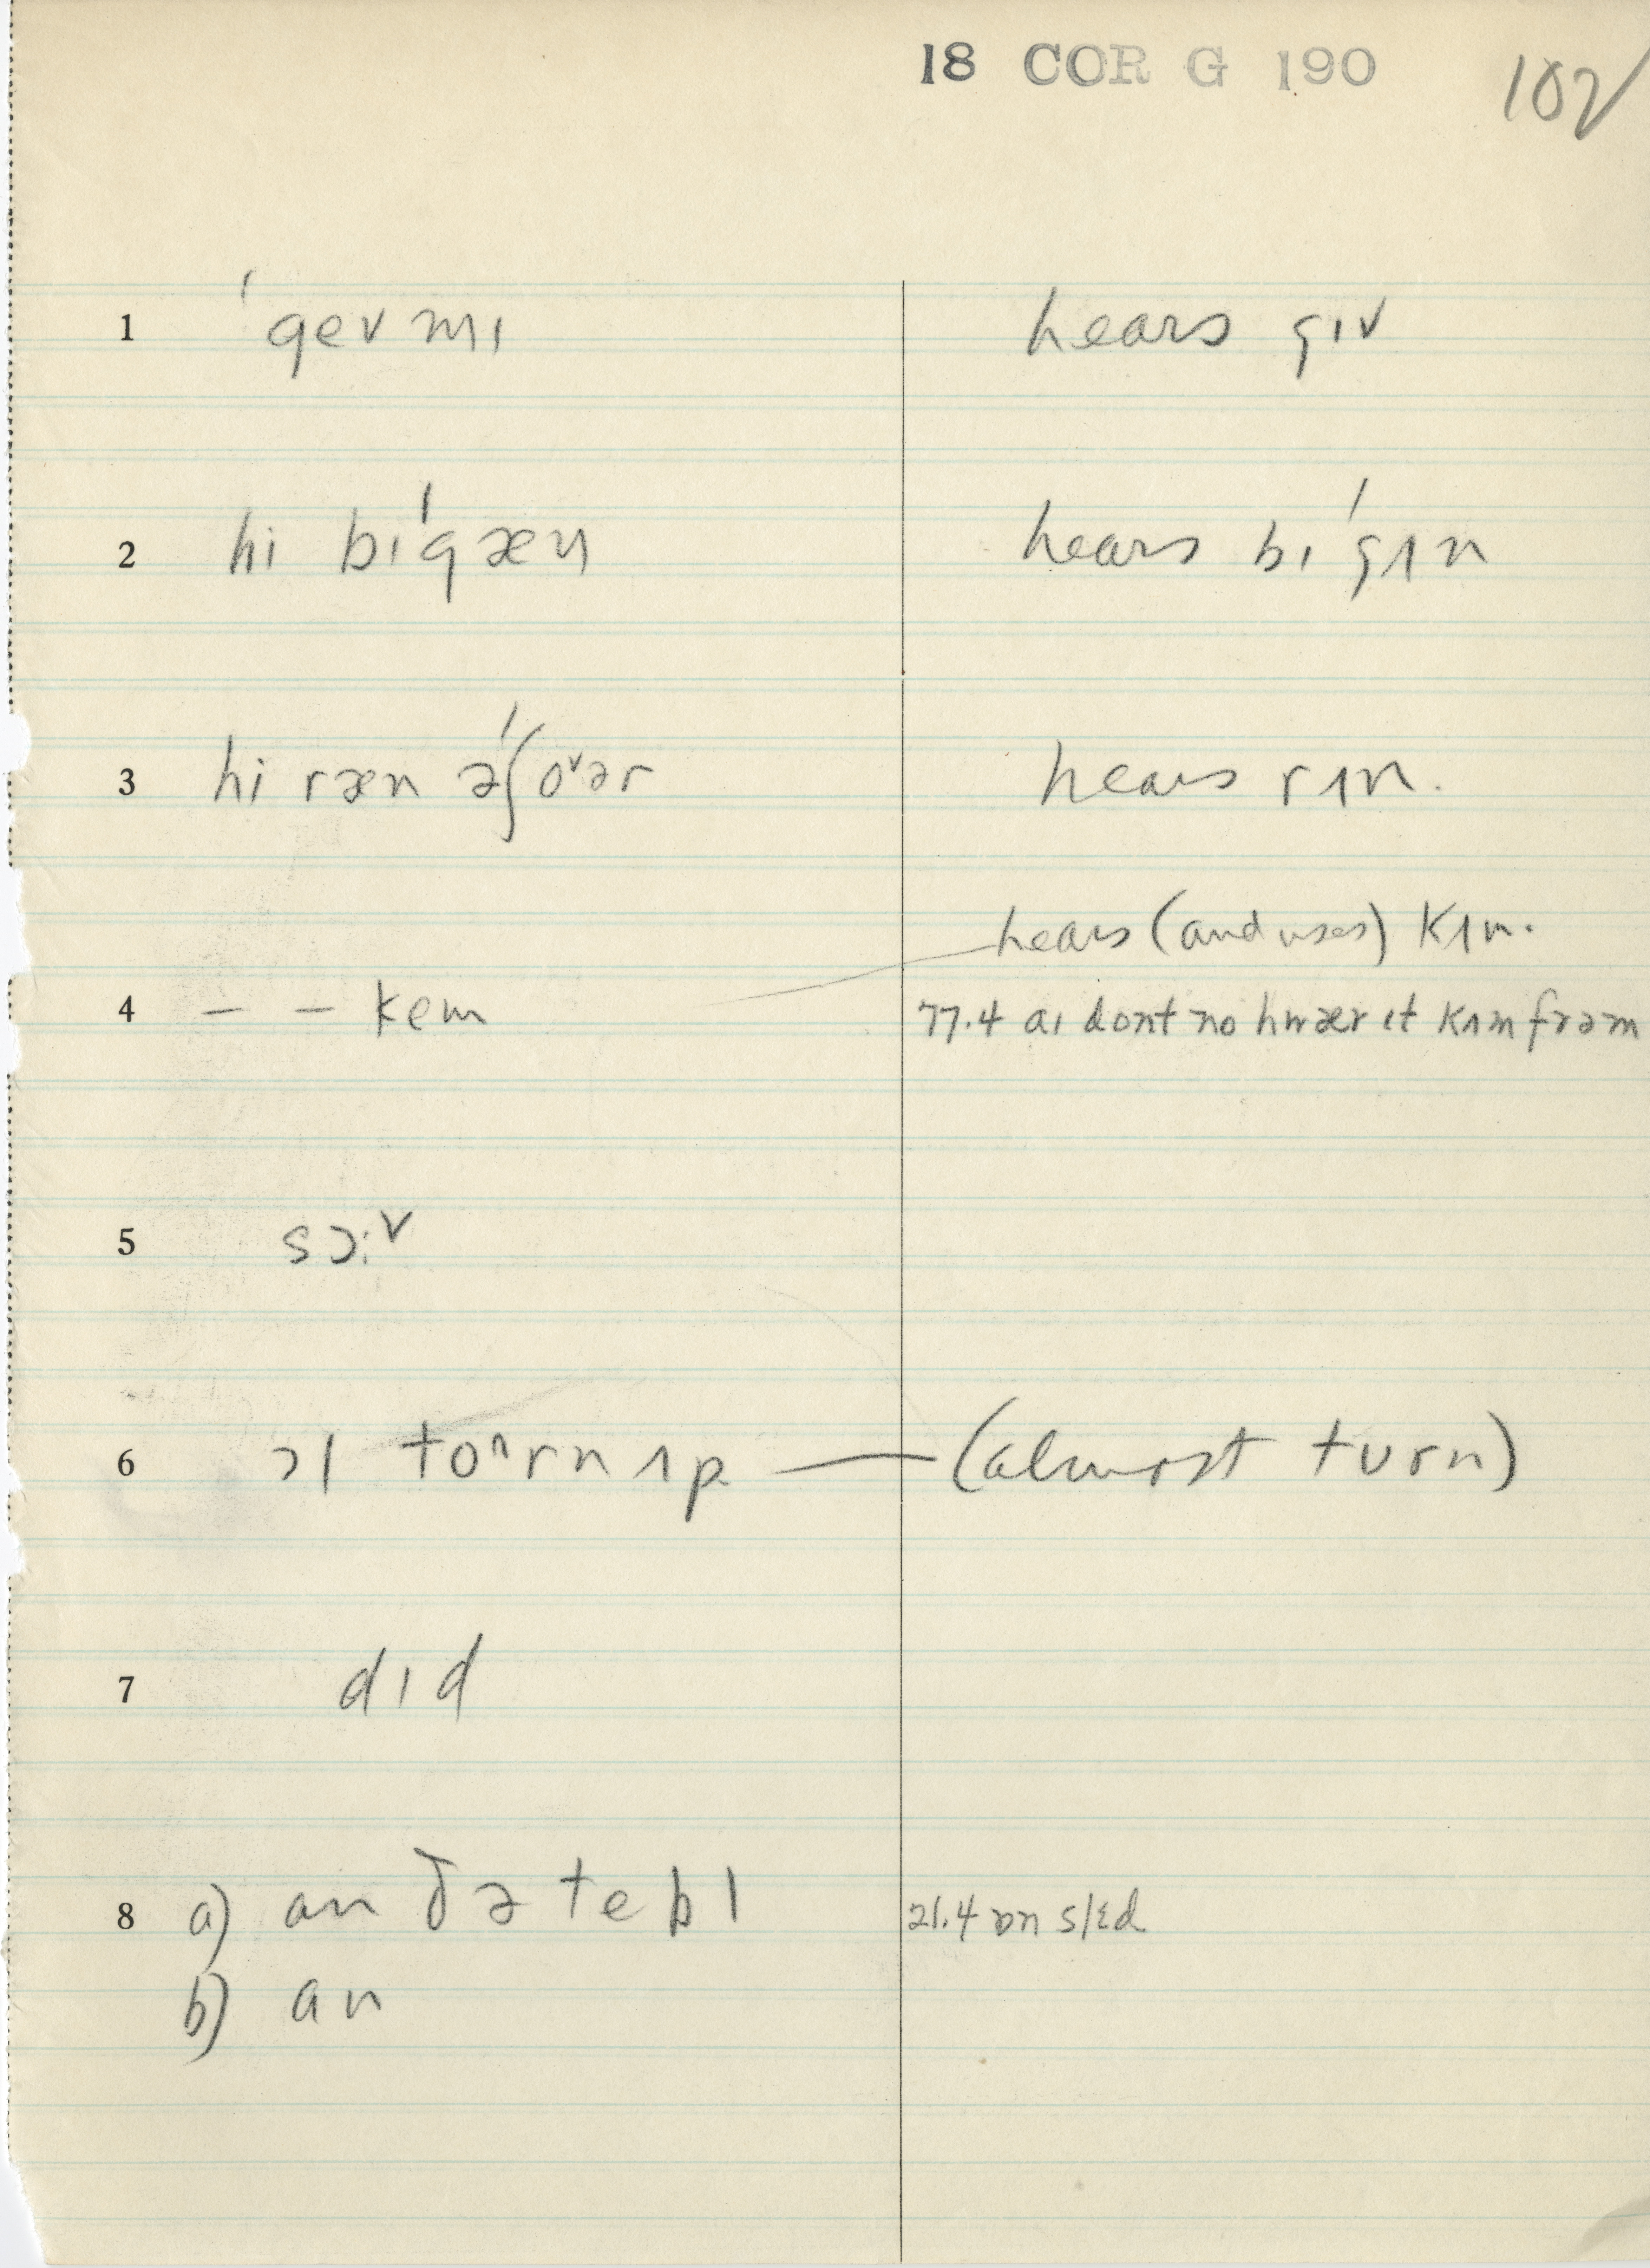 18 COR G 190 102
1 ˈgev mɪ hears gɪv
2 hi bɪˈgæn hears bɪˈgʌn
3 hi ræn əˈʃoᵛər hears rʌn.
hears (and uses) kʌm.
4 – – kem 77.4 aɪ dont no hwær ɪt kʌm frəm
5 sɔ:ᵛ
6 ɔl toˆrn ʌp — (almost tʊrn)
7 dɪd
8 a) an ðə tebl 21.4 ɒn slɛd
b) an